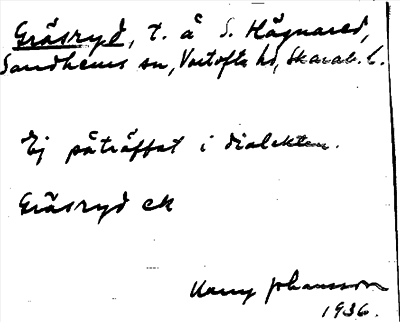 Gräsryd, t. å S. Hågnared,
Sandhems sn, Vartofta hd, Skarab. l.
Ej påträffat i dialekten.
Gräsryd ek
Harry Johansson
1936.